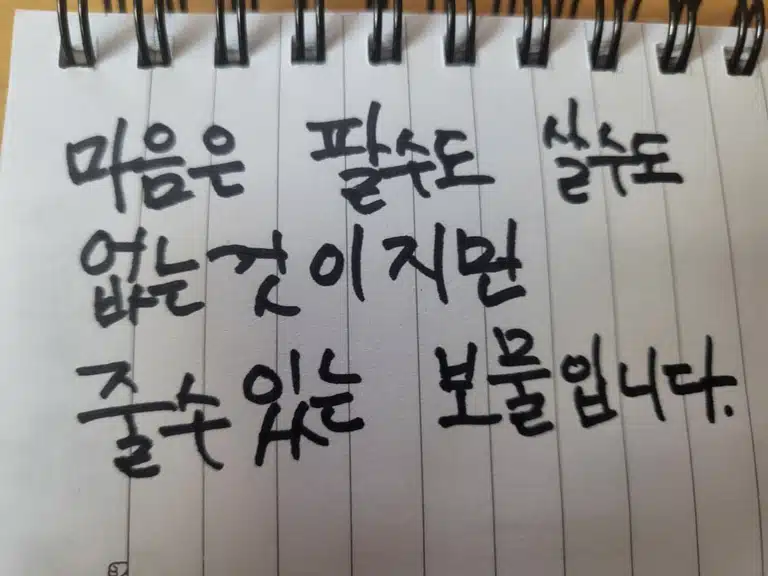 마음은 팔수도 살수도
없는것이지만
줄수있는 보물입니다.